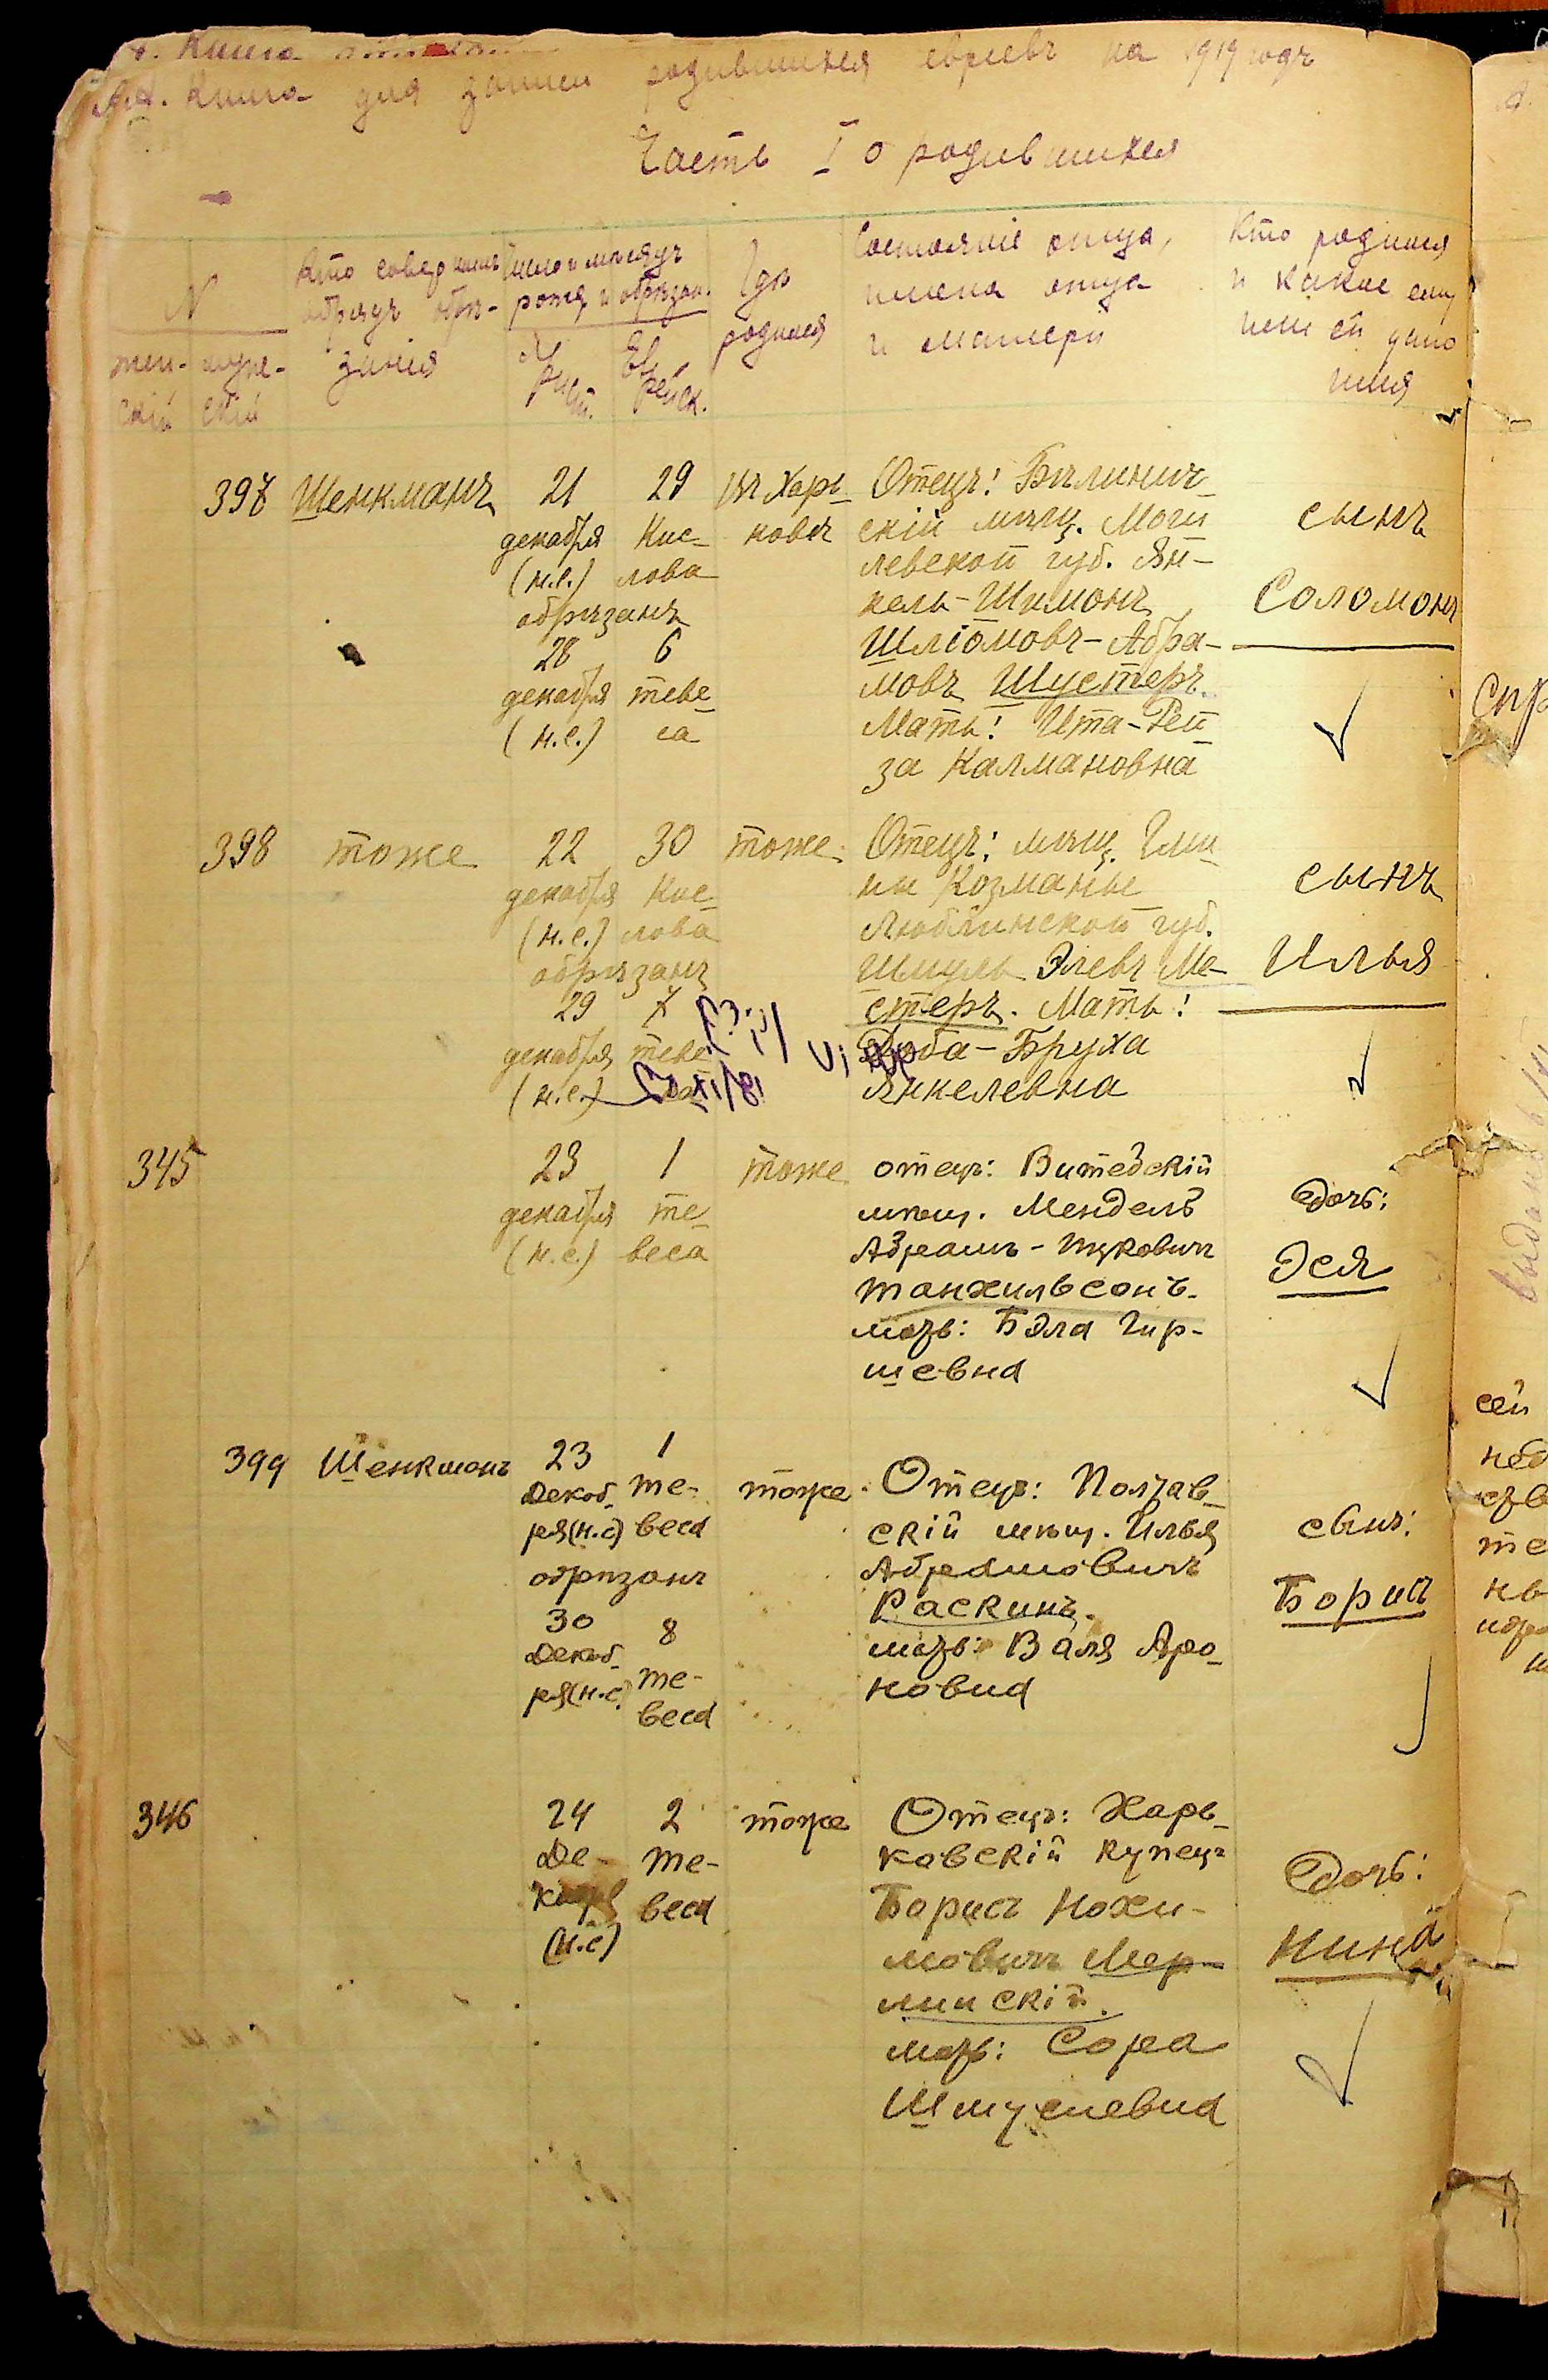 Книга для записи родившихся евреевъ на 1919 годъ
Часть I о родившихся
N
жен-
скій
муже-
скій
Кто совершилъ
обрядъ обрѣ-
занія
Число и мѣсяцъ
рожд. и обрѣзан.
Хри-
ст.
Ев-
рейск.
Гдѣ
родился
Состояніе отца,
имена отца
и матери
Кто родился
и какое ему
или ей дано
имя
397
Шенкманъ
21
декабря
(н.с.)
обрѣзанъ
28
декабря
(н.с.)
29
Кис-
лова
6
теве-
са
въ Харь-
ковѣ
Отецъ: Бѣлинич-
скій мѣщ. Моги-
левской губ. Ян-
кель-Шимонъ
Шліомовъ-Абра-
мовъ Шустеръ.
Мать: Ита-Рей-
за Калмановна
сынъ
Соломонъ
398
тоже
22
декабря
(н.с.)
обрѣзанъ
29
декабря
(н.с.)
30
Кис-
лова
7
теве
тоже
Отецъ: мѣщ. Гми-
ны Козманье
Люблинской губ.
Шмуль Элевъ Ме-
стеръ. Мать:
Доба-Бруха
Янкелевна
сынъ
Илья
345
23
декабря
(н.с.)
1
те-
веса
тоже
отецъ: Витебскій
мѣщ. Мендель
Абрамъ-Ицковичъ
Танхильсонъ.
мать: Бэла Гир-
шевна
дочь:
Эся
399
Шенкманъ
23
Декаб-
ря(н.с)
обрѣзанъ
30
Декаб-
ря(н.с)
1
те-
веса
8
те-
веса
тоже
Отецъ: Полтав-
скій мѣщ. Илья
Абрамовичъ
Раскинъ.
мать: Валя Аро-
новна
сынъ:
Борисъ
346
24
Де-
кабря
(н.с)
2
те-
веса
тоже
Отецъ: Харь-
ковскій купецъ
Борисъ Нохи-
мовичъ Мер-
линскій.
мать: Сора
Шмулевна
дочь:
Нина